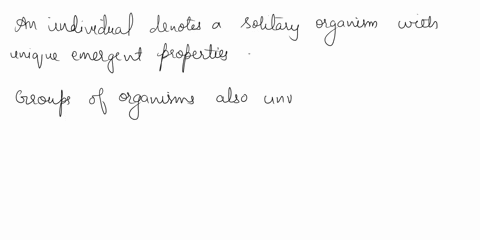 An individual denotes a solitary organism with
unique emergent properties.
Groups of organisms also unv